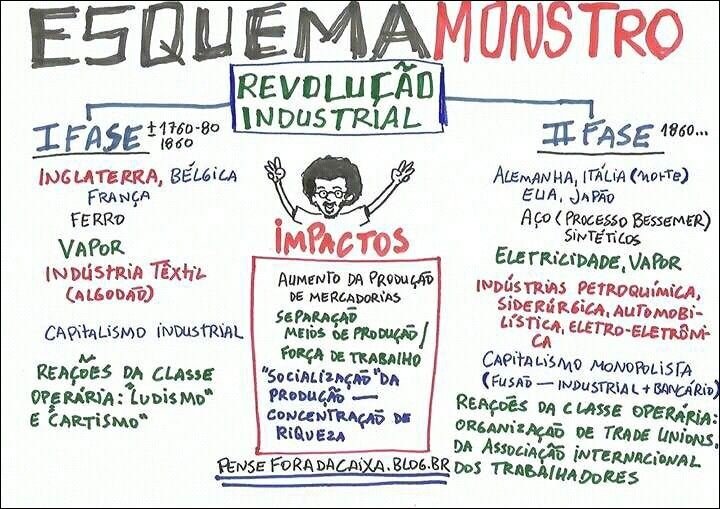 ESQUEMA MONSTRO
REVOLUÇÃO
INDUSTRIAL
I FASE ±1760-80
1860
INGLATERRA, BÉLGICA
FRANÇA
FERRO
VAPOR
INDÚSTRIA TÊXTIL
(ALGODÃO)
CAPITALISMO INDUSTRIAL
REAÇÕES DA CLASSE
OPERÁRIA: "LUDISMO"
E "CARTISMO"
IMPACTOS
AUMENTO DA PRODUÇÃO
DE MERCADORIAS
SEPARAÇÃO
MEIOS DE PRODUÇÃO/
FORÇA DE TRABALHO
"SOCIALIZAÇÃO" DA
PRODUÇÃO —
CONCENTRAÇÃO DE
RIQUEZA
PENSEFORADACAIXA.BLOG.BR
II FASE 1860...
ALEMANHA, ITÁLIA (NORTE)
EUA, JAPÃO
AÇO (PROCESSO BESSEMER)
SINTÉTICOS
ELETRICIDADE, VAPOR
INDÚSTRIAS PETROQUÍMICA,
SIDERÚRGICA, AUTOMOBI-
LÍSTICA, ELETRO-ELETRÔNI-
CA
CAPITALISMO MONOPOLISTA
(FUSÃO — INDUSTRIAL + BANCÁRIO)
REAÇÕES DA CLASSE OPERÁRIA:
ORGANIZAÇÃO DE TRADE UNIONS,
DA ASSOCIAÇÃO INTERNACIONAL
DOS TRABALHADORES